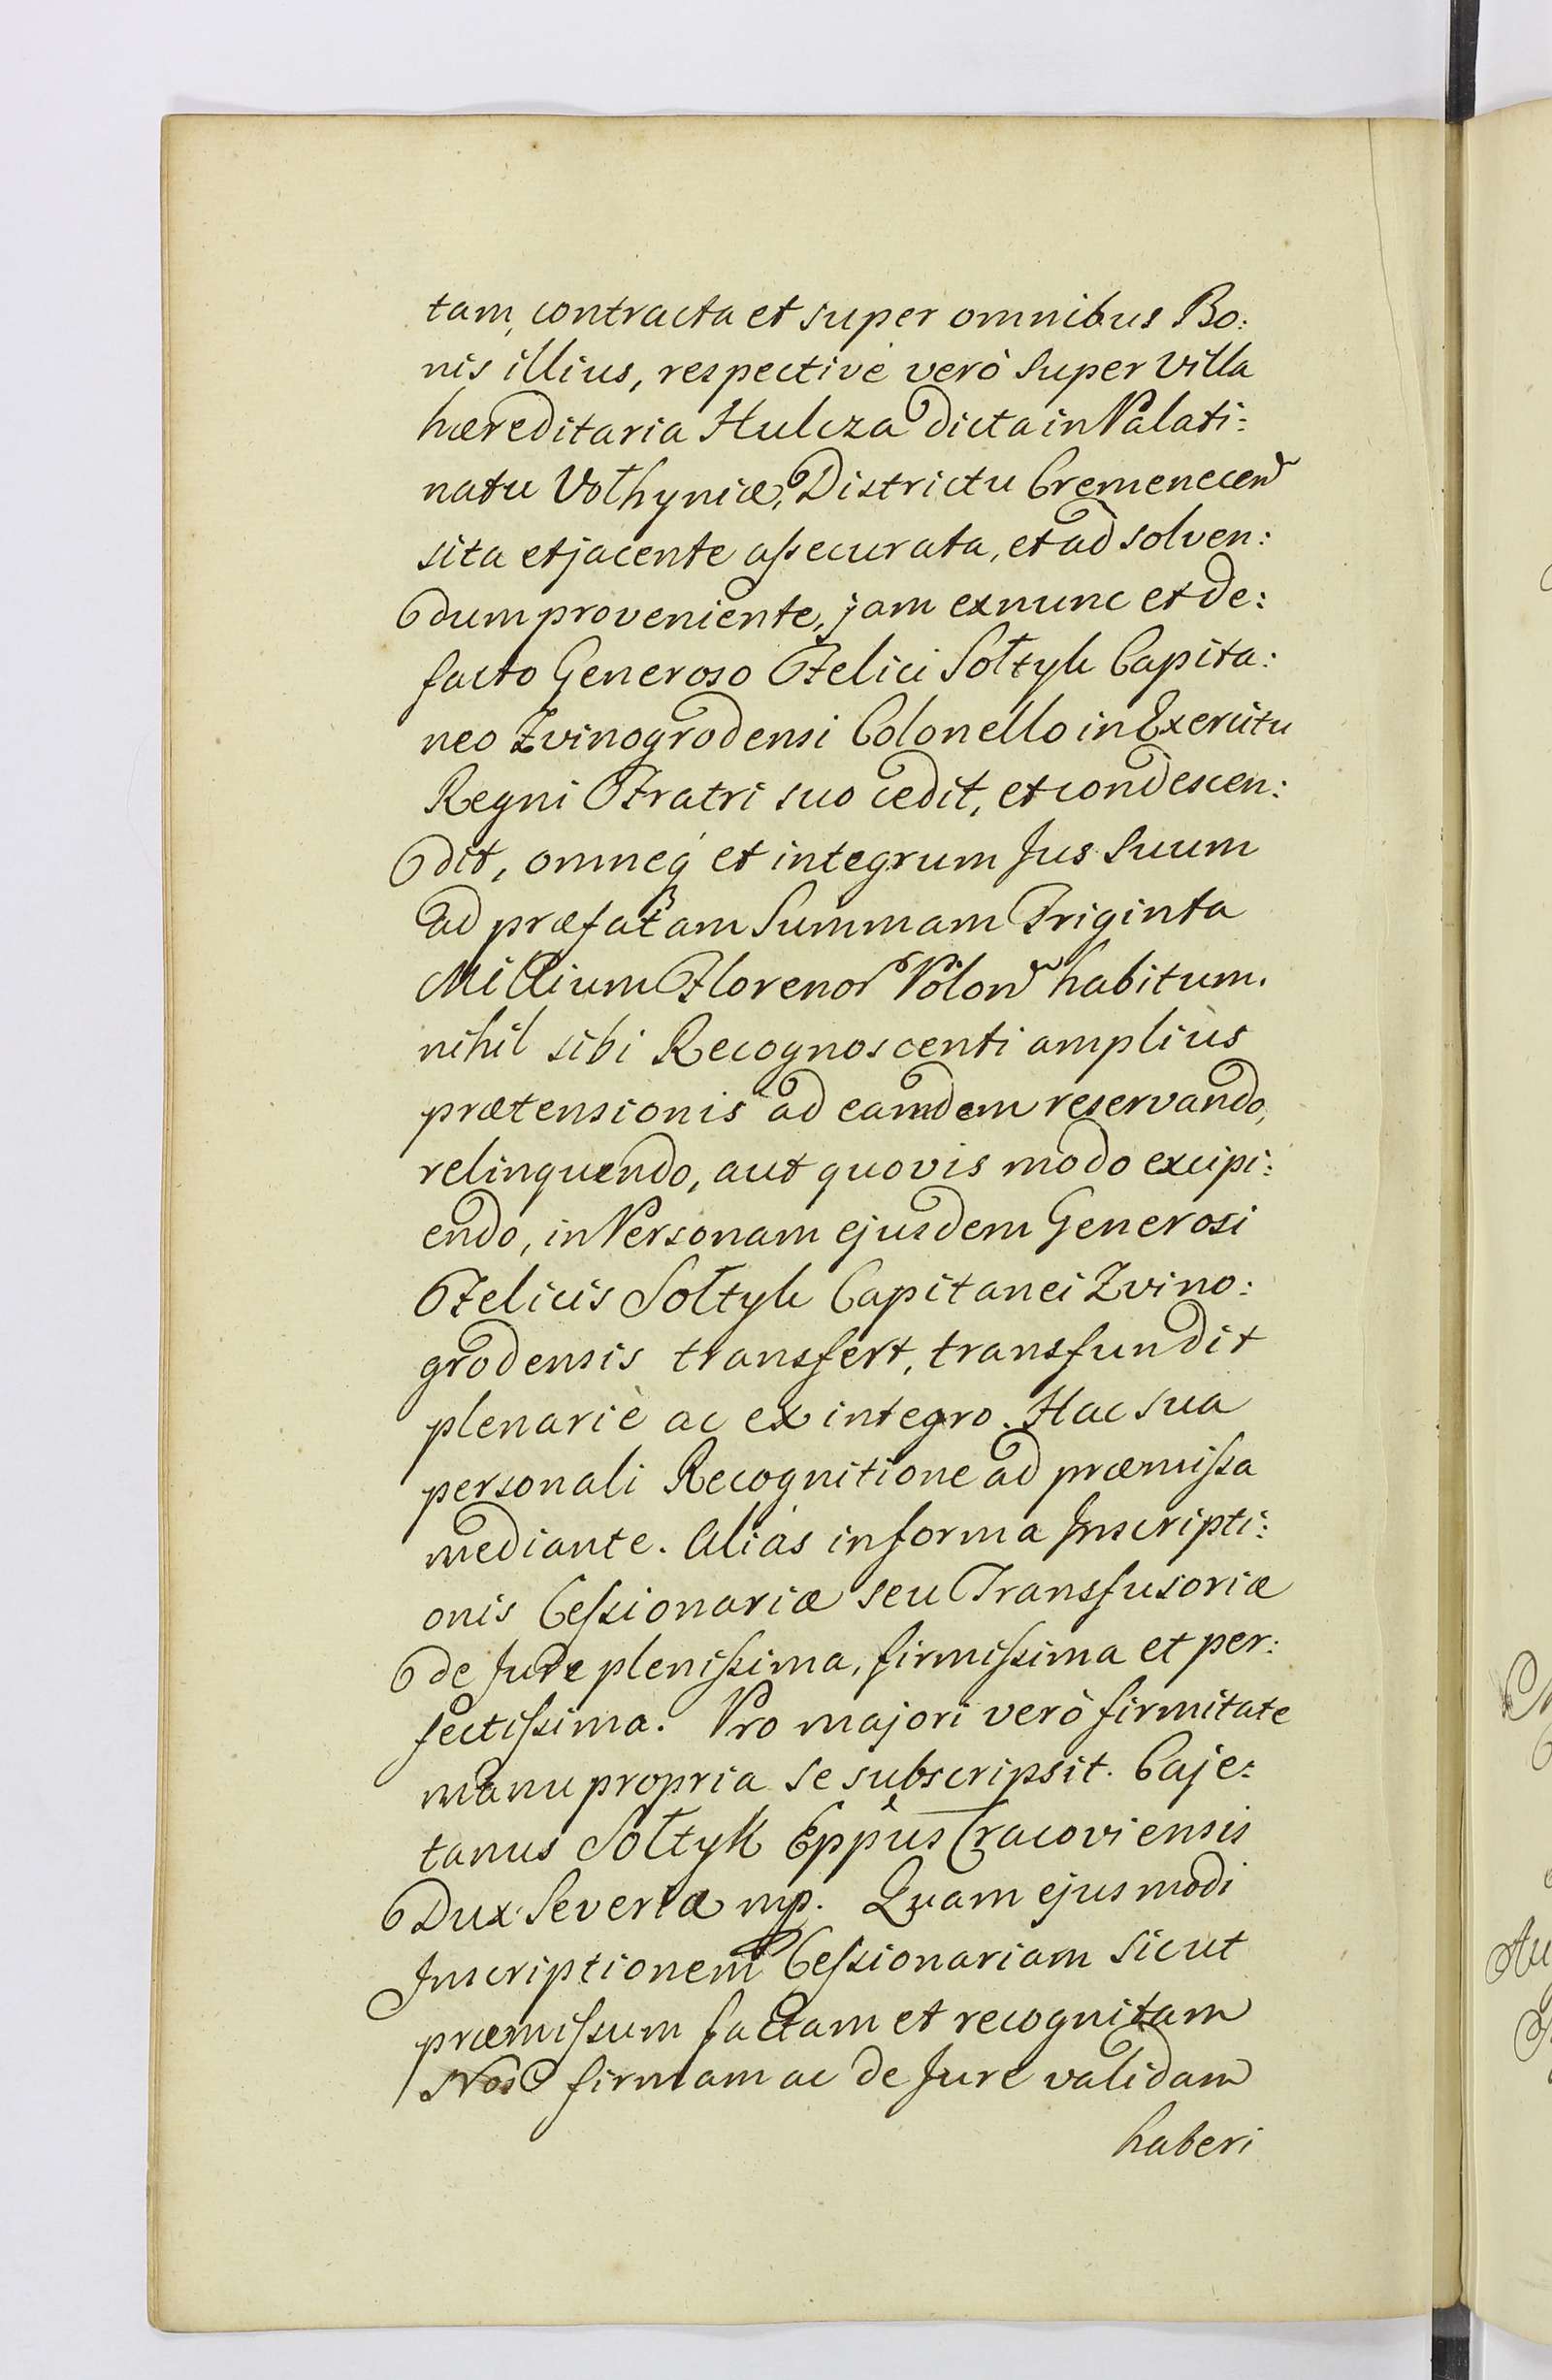 tam, contracta et super omnibus Bo:
nis illius, respectivè verò super Villa
hæreditaria Hulcza dicta in Palati:
natu Volhyniæ, Districtu Cremenecen̄
sita et jacente assecurata, et ad solven:
dum proveniente, jam ex nunc et de:
facto Generoso Felici Sołtyk Capita:
neo Zvinogrodensi Colonello in Exercitu
Regni Fratri suo cedit, et condescen:
dit, omneq́ et integrum Jus Suum
ad præfatam Summam Triginta
Millium Florenor Polon̄ habitum.
nihil sibi Recognoscenti ampliùs
prætensionis ad eamdem reservando,
relinquendo, aut quovis modo excipi:
endo, in Personam ejusdem Generosi
Felicis Sołtyk Capitanei Zvino:
grodensis transfert, transfundit
plenariè ac ex integro. Hac sua
personali Recognitione ad præmissa
mediante. Aliàs in forma Inscripti:
onis Cessionariæ seu Transfusoriæ
de Jure plenissima, firmissima et per:
fectissima. Pro majori verò firmitate
manu propria se subscripsit. Caje:
tanus Sołtyk Eppûs Cracoviensis
Dux Severiæ mp. Quam ejusmodi
Inscriptionem Cessionariam sicut
præmissum factam et recognitam
Nos firmam ac de Jure validam
haberi